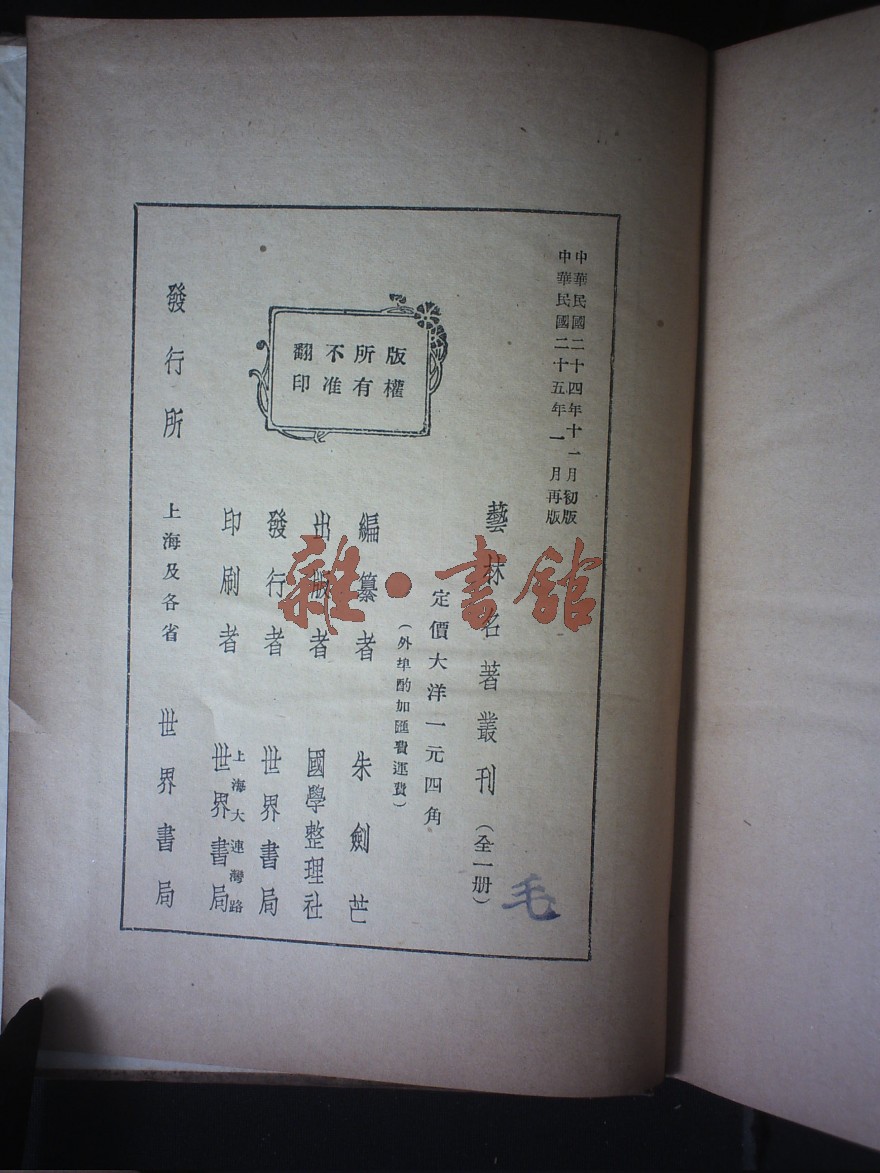 中華民國二十四年十一月初版
中華民國二十五年一月再版
藝林名著叢刊（全一册）
毛
定價大洋一元四角
（外埠酌加匯費運費）
版權
所有
不准
翻印
編纂者 朱劍芒
出版者 國學整理社
發行者 世界書局
印刷者 上海大連灣路
世界書局
發行所 上海及各省 世界書局
雜·書館